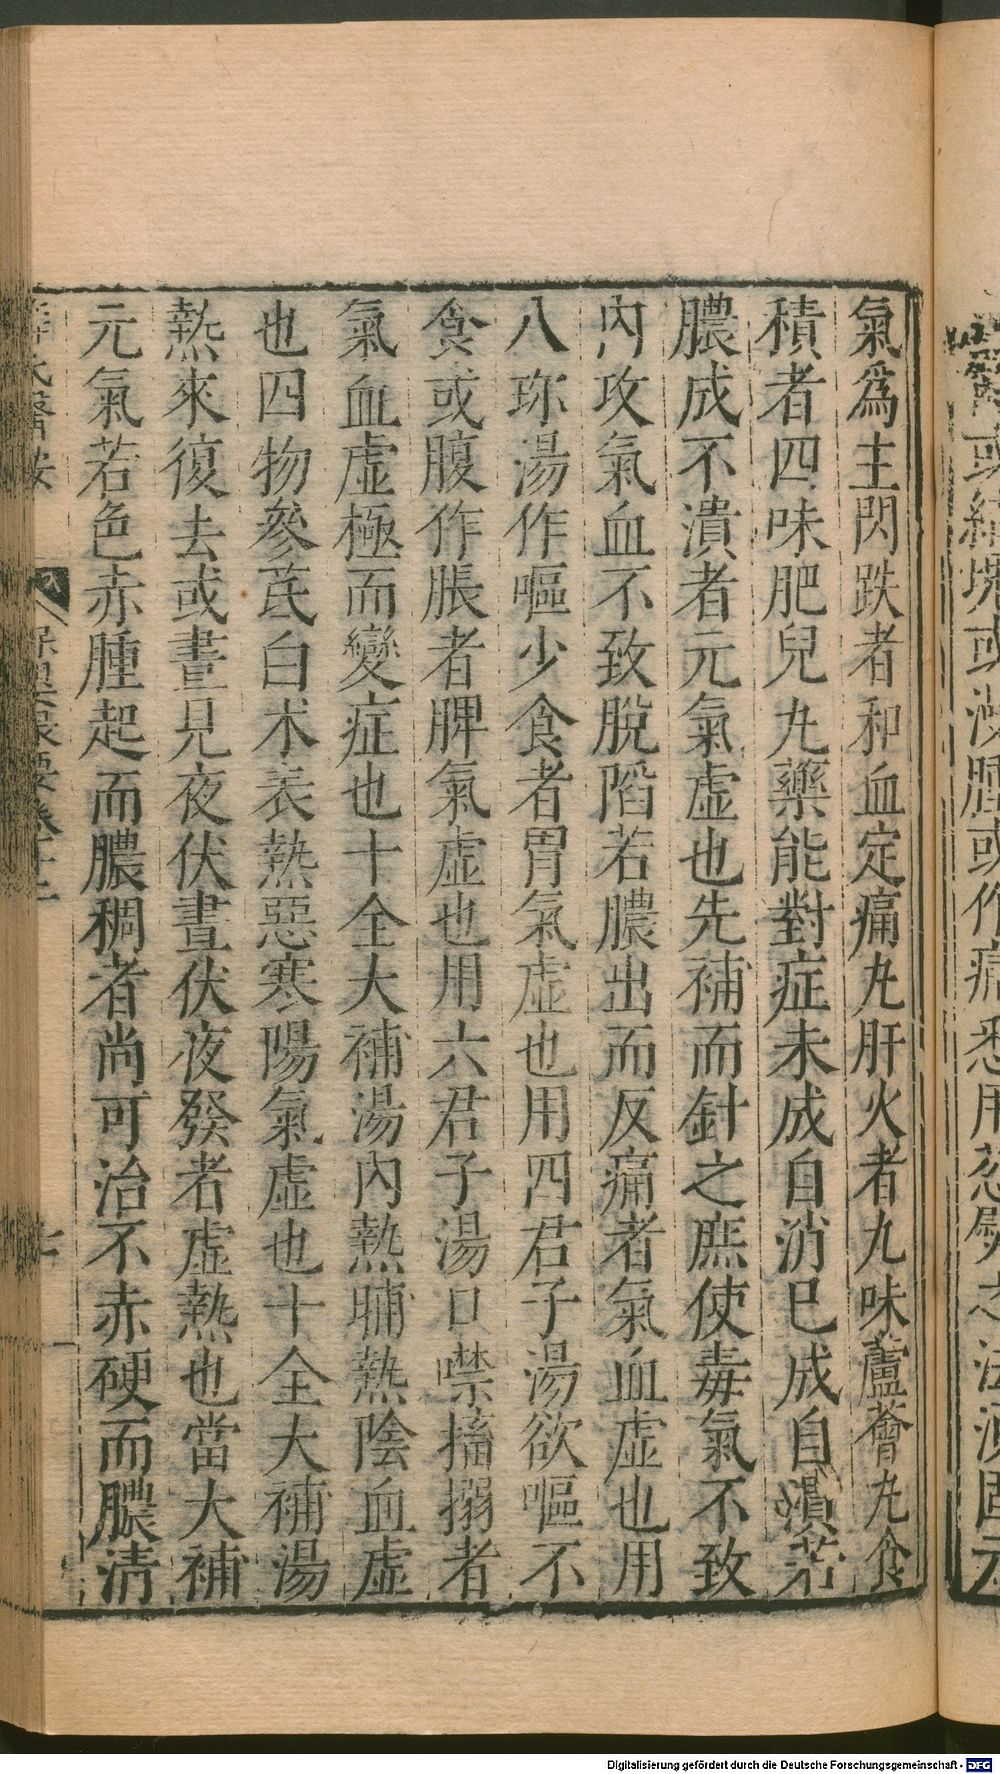 或結塊或漫腫或作痛悉用葱熨之法須固元
氣爲主閃跌者和血定痛丸肝火者九味蘆薈丸食
積者四味肥兒丸藥能對症未成自消已成自潰若
膿成不潰者元氣虛也先補而針之庶使毒氣不致
內攻氣血不致脫陷若膿出而反痛者氣血虛也用
八珎湯作嘔少食者胃氣虛也用四君子湯欲嘔不
食或腹作脹者脾氣虛也用六君子湯口噤搐搦者
氣血虛極而變症也十全大補湯內熱晡熱陰血虛
也四物參芪白朮表熱惡寒陽氣虛也十全大補湯
熱來復去或晝見夜伏晝伏夜發者虛熱也當大補
元氣若色赤腫起而膿稠者尚可治不赤硬而膿清
薛氏醫按 保嬰撮要卷十二
Digitalisierung gefördert durch die Deutsche Forschungsgemeinschaft - DFG